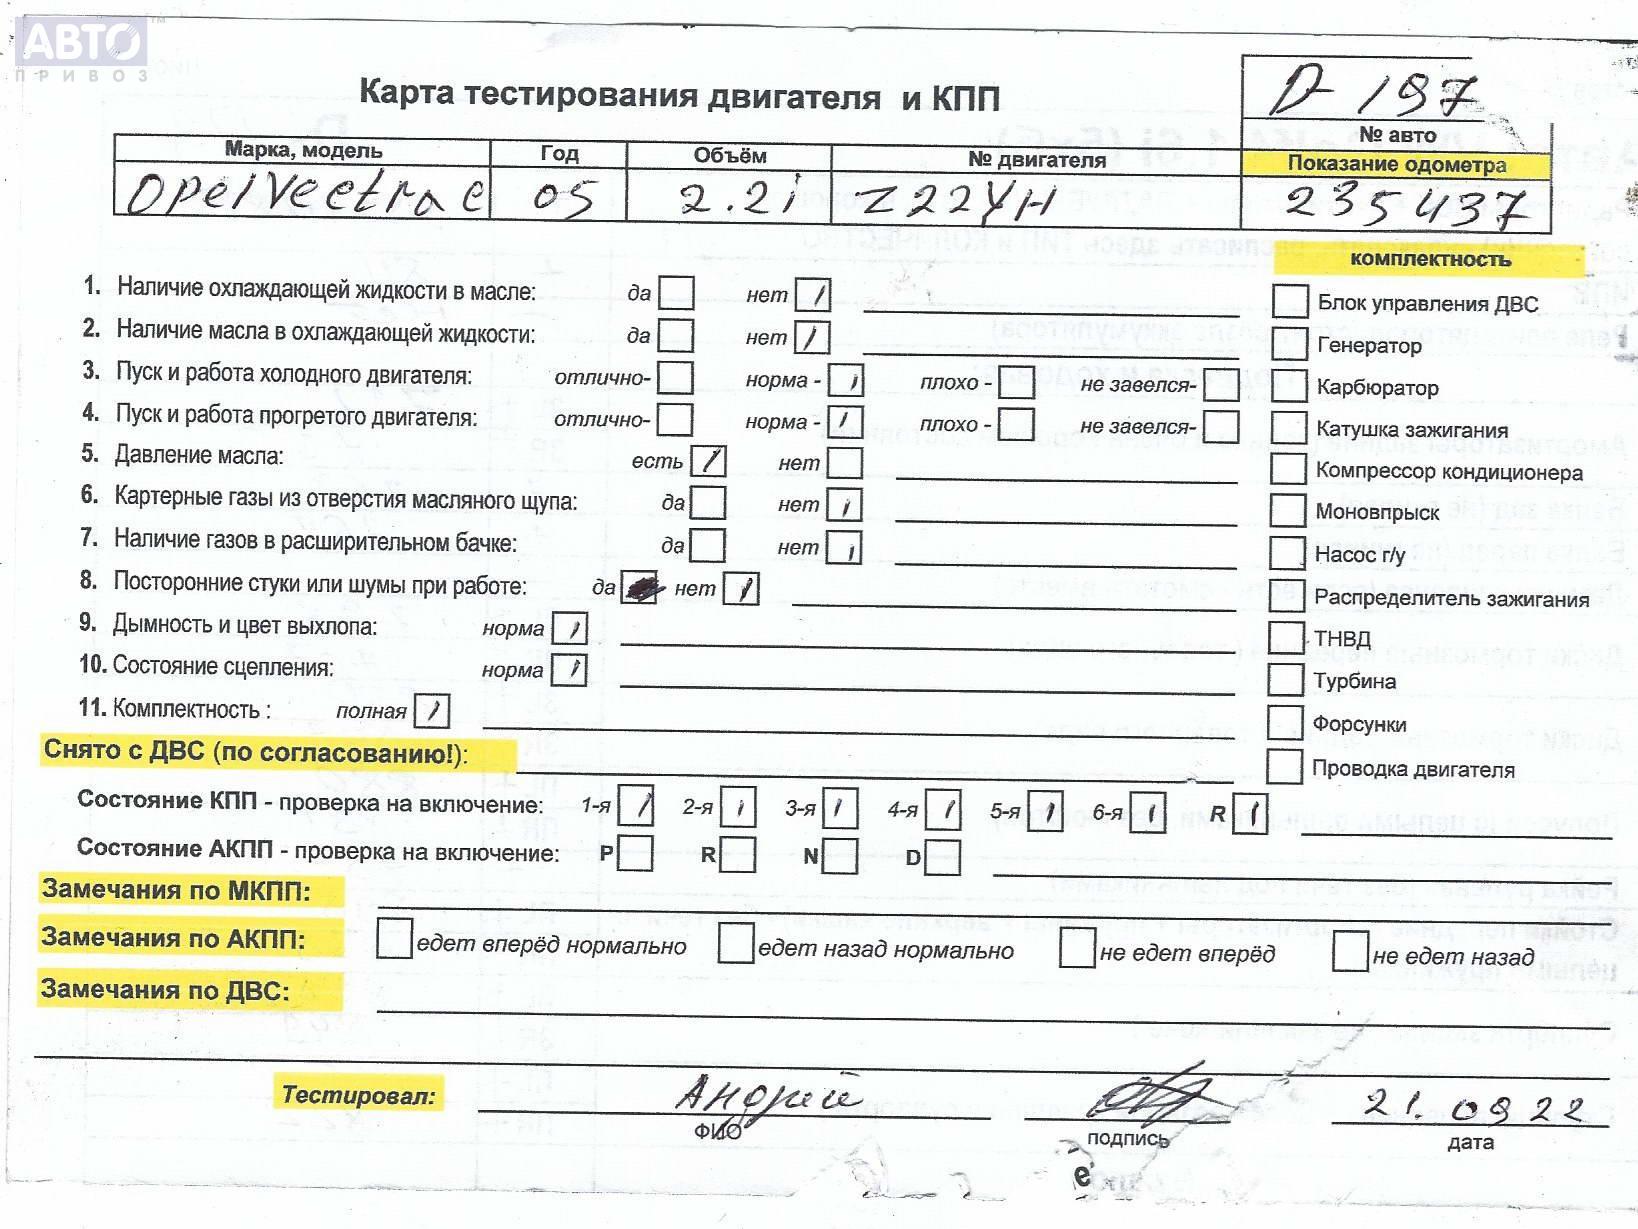 АВТО
ПРИВОЗ
Карта тестирования двигателя и КПП
D-197
№ авто
Марка, модель Год Объём № двигателя Показание одометра
Opel Vectra C 05 2.2i Z22YH 235437
комплектность
1. Наличие охлаждающей жидкости в масле: да нет /
Блок управления ДВС
2. Наличие масла в охлаждающей жидкости: да нет /
Генератор
3. Пуск и работа холодного двигателя: отлично- норма - / плохо - не завелся-
Карбюратор
4. Пуск и работа прогретого двигателя: отлично- норма - / плохо - не завелся-
Катушка зажигания
5. Давление масла: есть / нет
Компрессор кондиционера
6. Картерные газы из отверстия масляного щупа: да нет /
Моновпрыск
7. Наличие газов в расширительном бачке: да нет /
Насос г/у
8. Посторонние стуки или шумы при работе: да нет /
Распределитель зажигания
9. Дымность и цвет выхлопа: норма /
ТНВД
10. Состояние сцепления: норма /
Турбина
11. Комплектность : полная /
Форсунки
Снято с ДВС (по согласованию!):
Проводка двигателя
Состояние КПП - проверка на включение: 1-я / 2-я / 3-я / 4-я / 5-я / 6-я / R /
Состояние АКПП - проверка на включение: P R N D
Замечания по МКПП:
Замечания по АКПП: едет вперёд нормально едет назад нормально не едет вперёд не едет назад
Замечания по ДВС:
Тестировал: Андрей 21.09 22
ФИО подпись дата